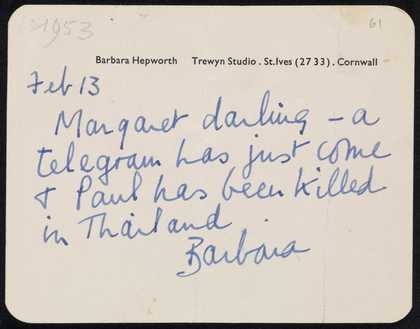 1953
61
Barbara Hepworth Trewyn Studio . St.Ives (27 33) . Cornwall
Feb 13
Margaret darling – a
telegram has just come
& Paul has been killed
in Thailand
Barbara